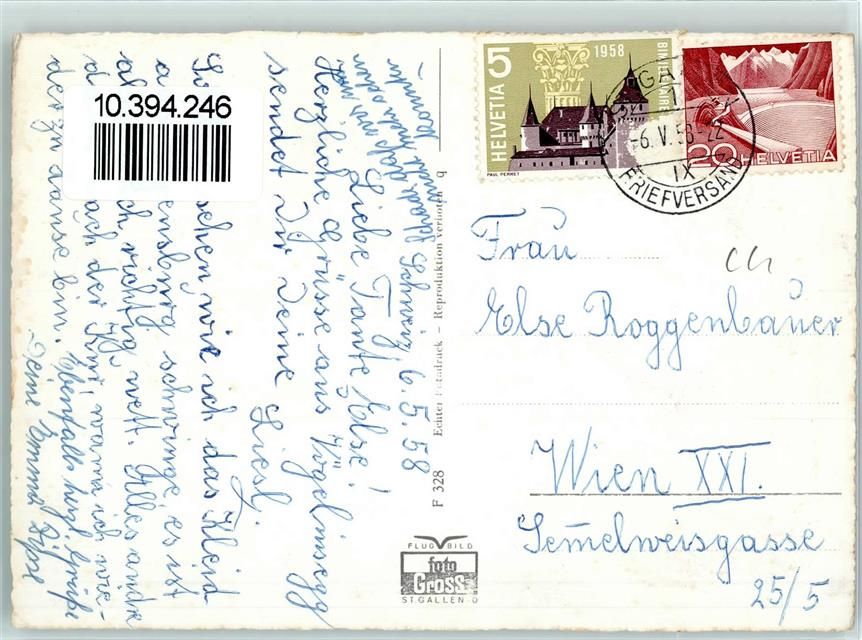 10.394.246
HELVETIA 5
1958
PAUL PERRET
20 HELVETIA
-6.V.58-22
IX
BRIEFVERSAND
Schweiz, 6. 5. 58
Liebe Tante Else!
Herzliche Grüsse aus Vögelinsegg
sendet Dir Deine
Liesl.
sehen wie ich das Kleid
schwinge, es ist
richtig nett. Alles andre
nach der wann ich wie-
der zu hause bin. Ebenfalls herzl. Grüße
Deine Emma
F 328 Echter Fotodruck - Reproduktion verboten q
FLUG BILD
foto
Gross
ST. GALLEN O
Frau
Else Roggenbauer
Wien XXI.
Semelweisgasse
25/5